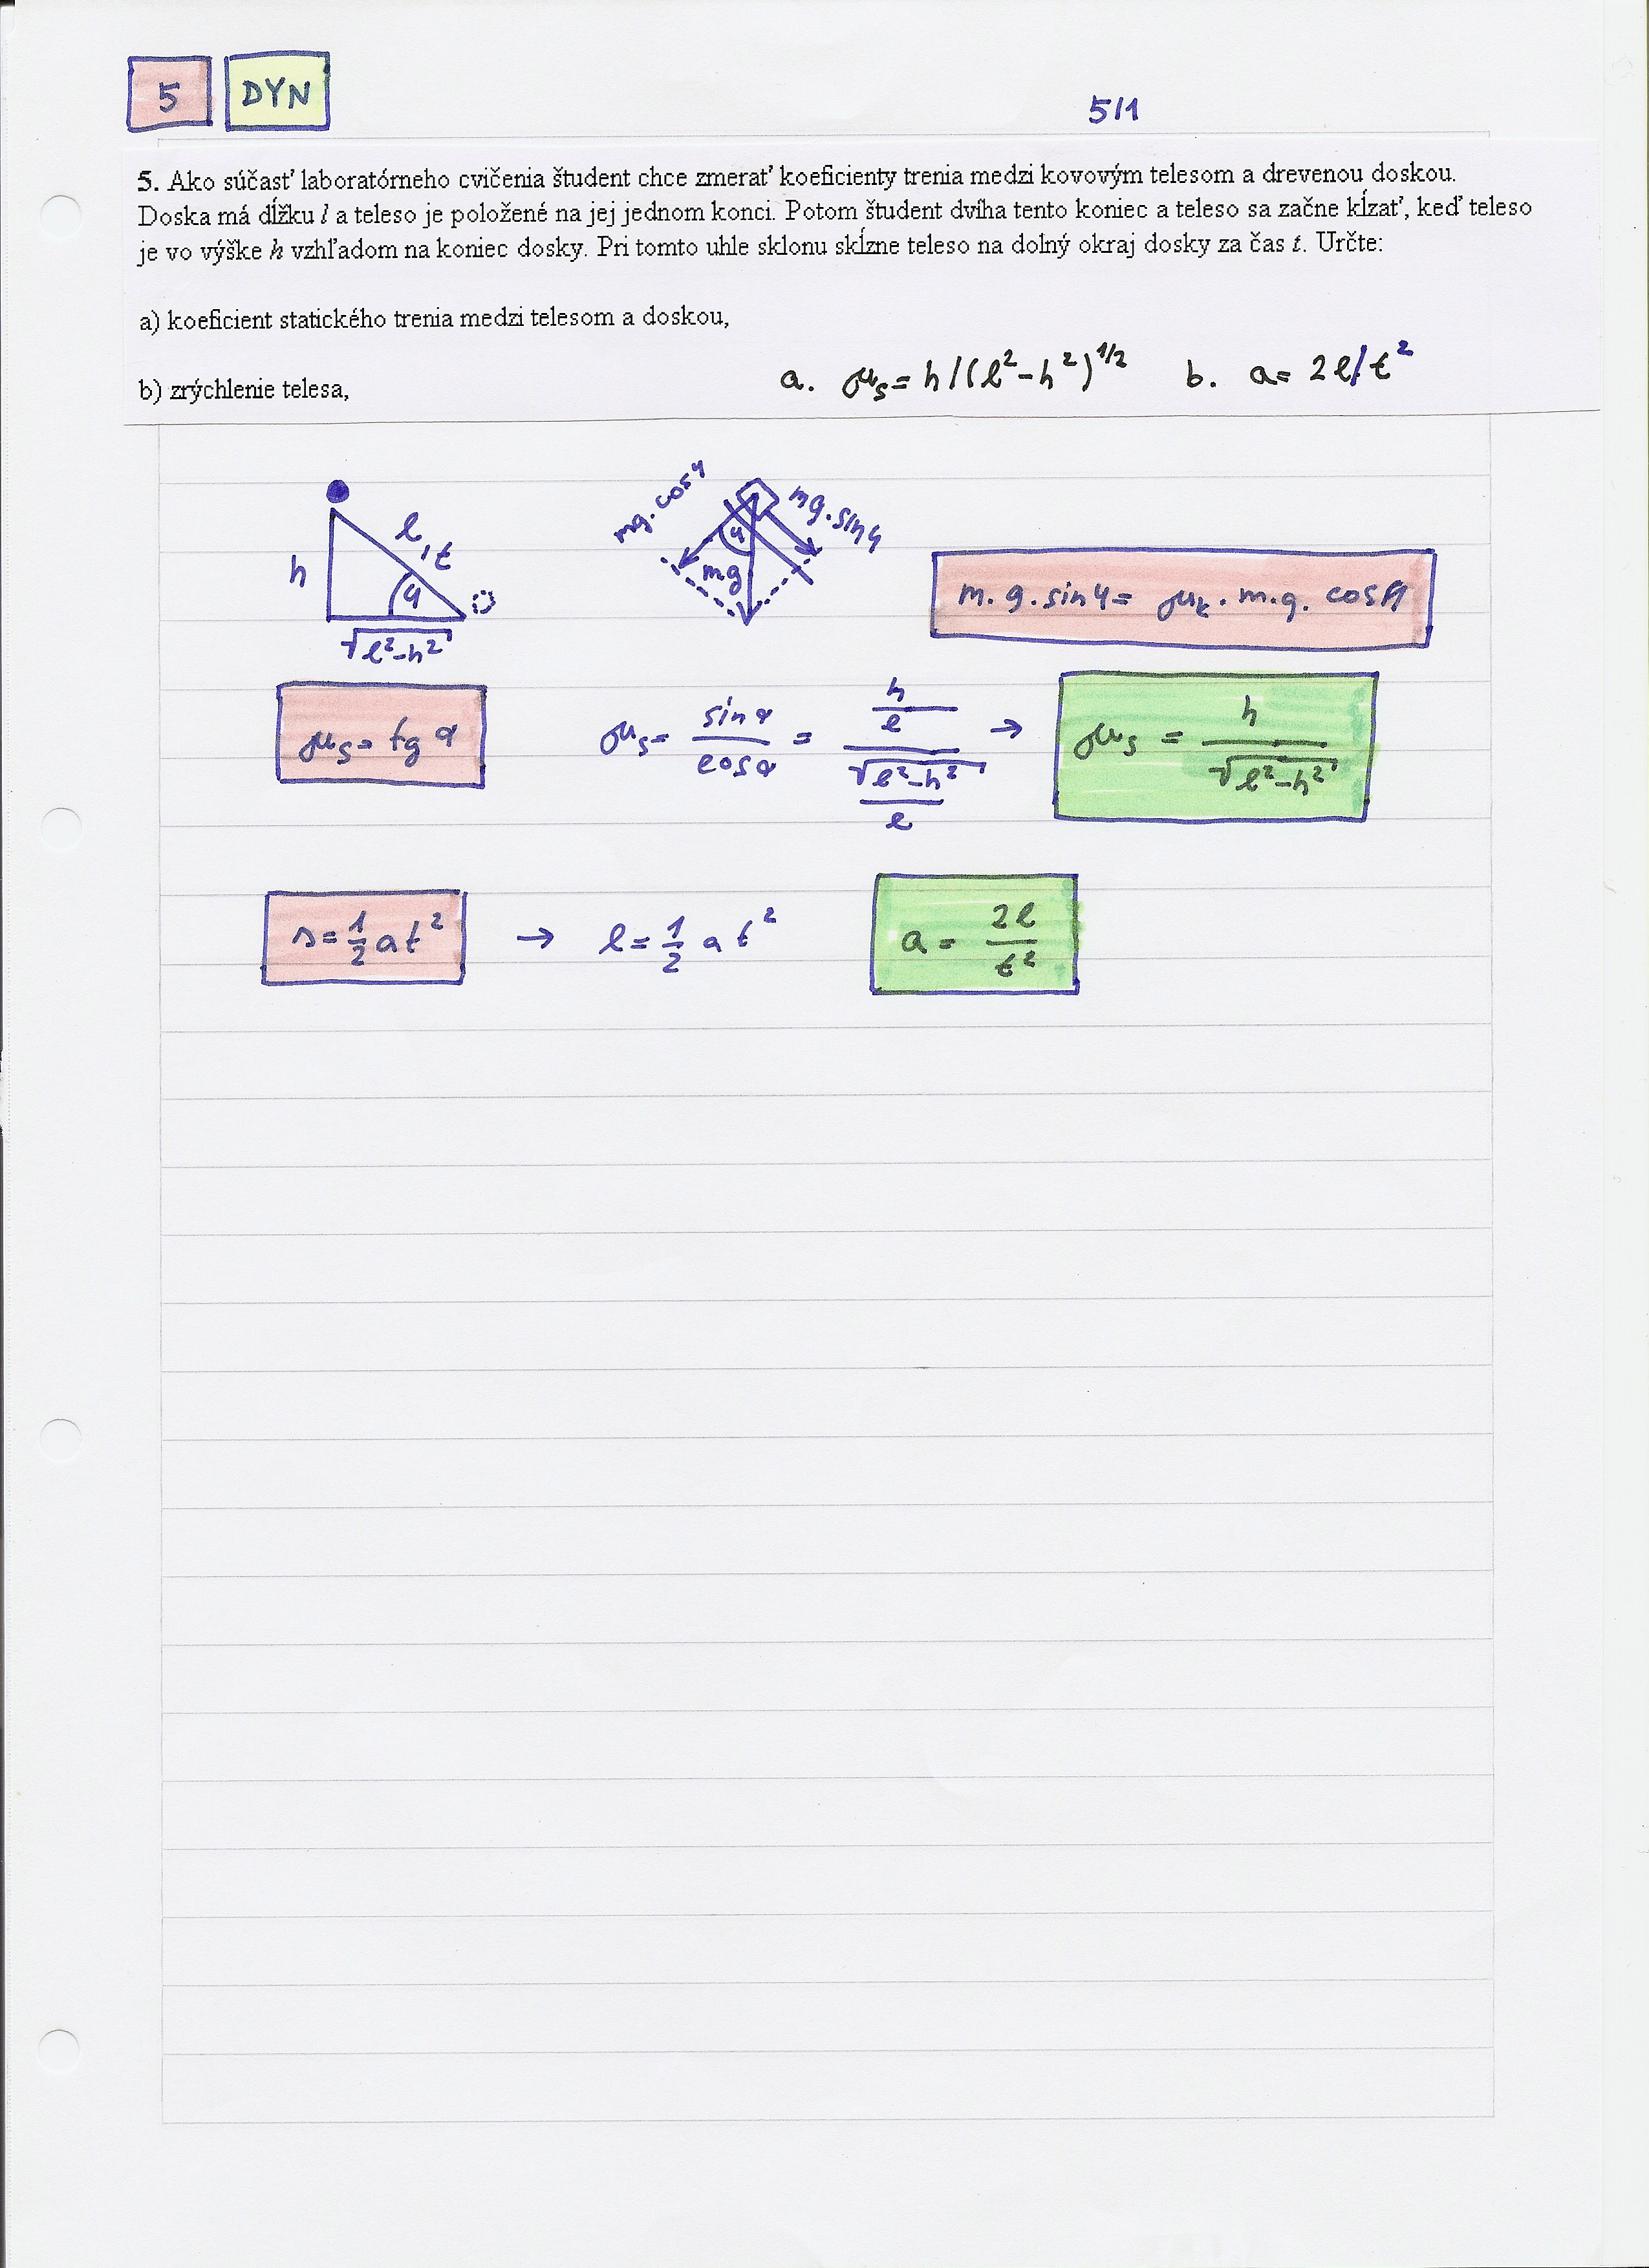 5 DYN
5/1
5. Ako súčasť laboratórneho cvičenia študent chce zmerať koeficienty trenia medzi kovovým telesom a drevenou doskou.
Doska má dĺžku l a teleso je položené na jej jednom konci. Potom študent dvíha tento koniec a teleso sa začne kĺzať, keď teleso
je vo výške h vzhľadom na koniec dosky. Pri tomto uhle sklonu skĺzne teleso na dolný okraj dosky za čas t. Určte:
a) koeficient statického trenia medzi telesom a doskou,
b) zrýchlenie telesa,
a. μs = h/(l²-h²)^1/2 b. a = 2l/t²
h l, t φ √l²-h²
mg.cosφ mg.sinφ φ mg
m.g.sinφ = μk.m.g.cosφ
μs = tg α
μs = sin α / cos α = (h/l) / (√l²-h² / l) → μs = h / √l²-h²
s = 1/2 a t² → l = 1/2 a t² a = 2l / t²